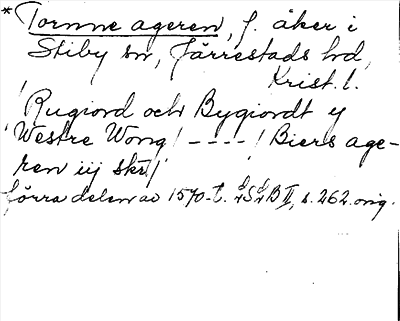 * Tornne ageren, f. åker i
Stiby sn, Järrestads hd,
Krist. l.
! Rugiord och Bygiordt y
Westre Wong / ---- / Biers age-
ren iij skr /
förra delen av 1570-t. LSLB II, s. 262. orig.